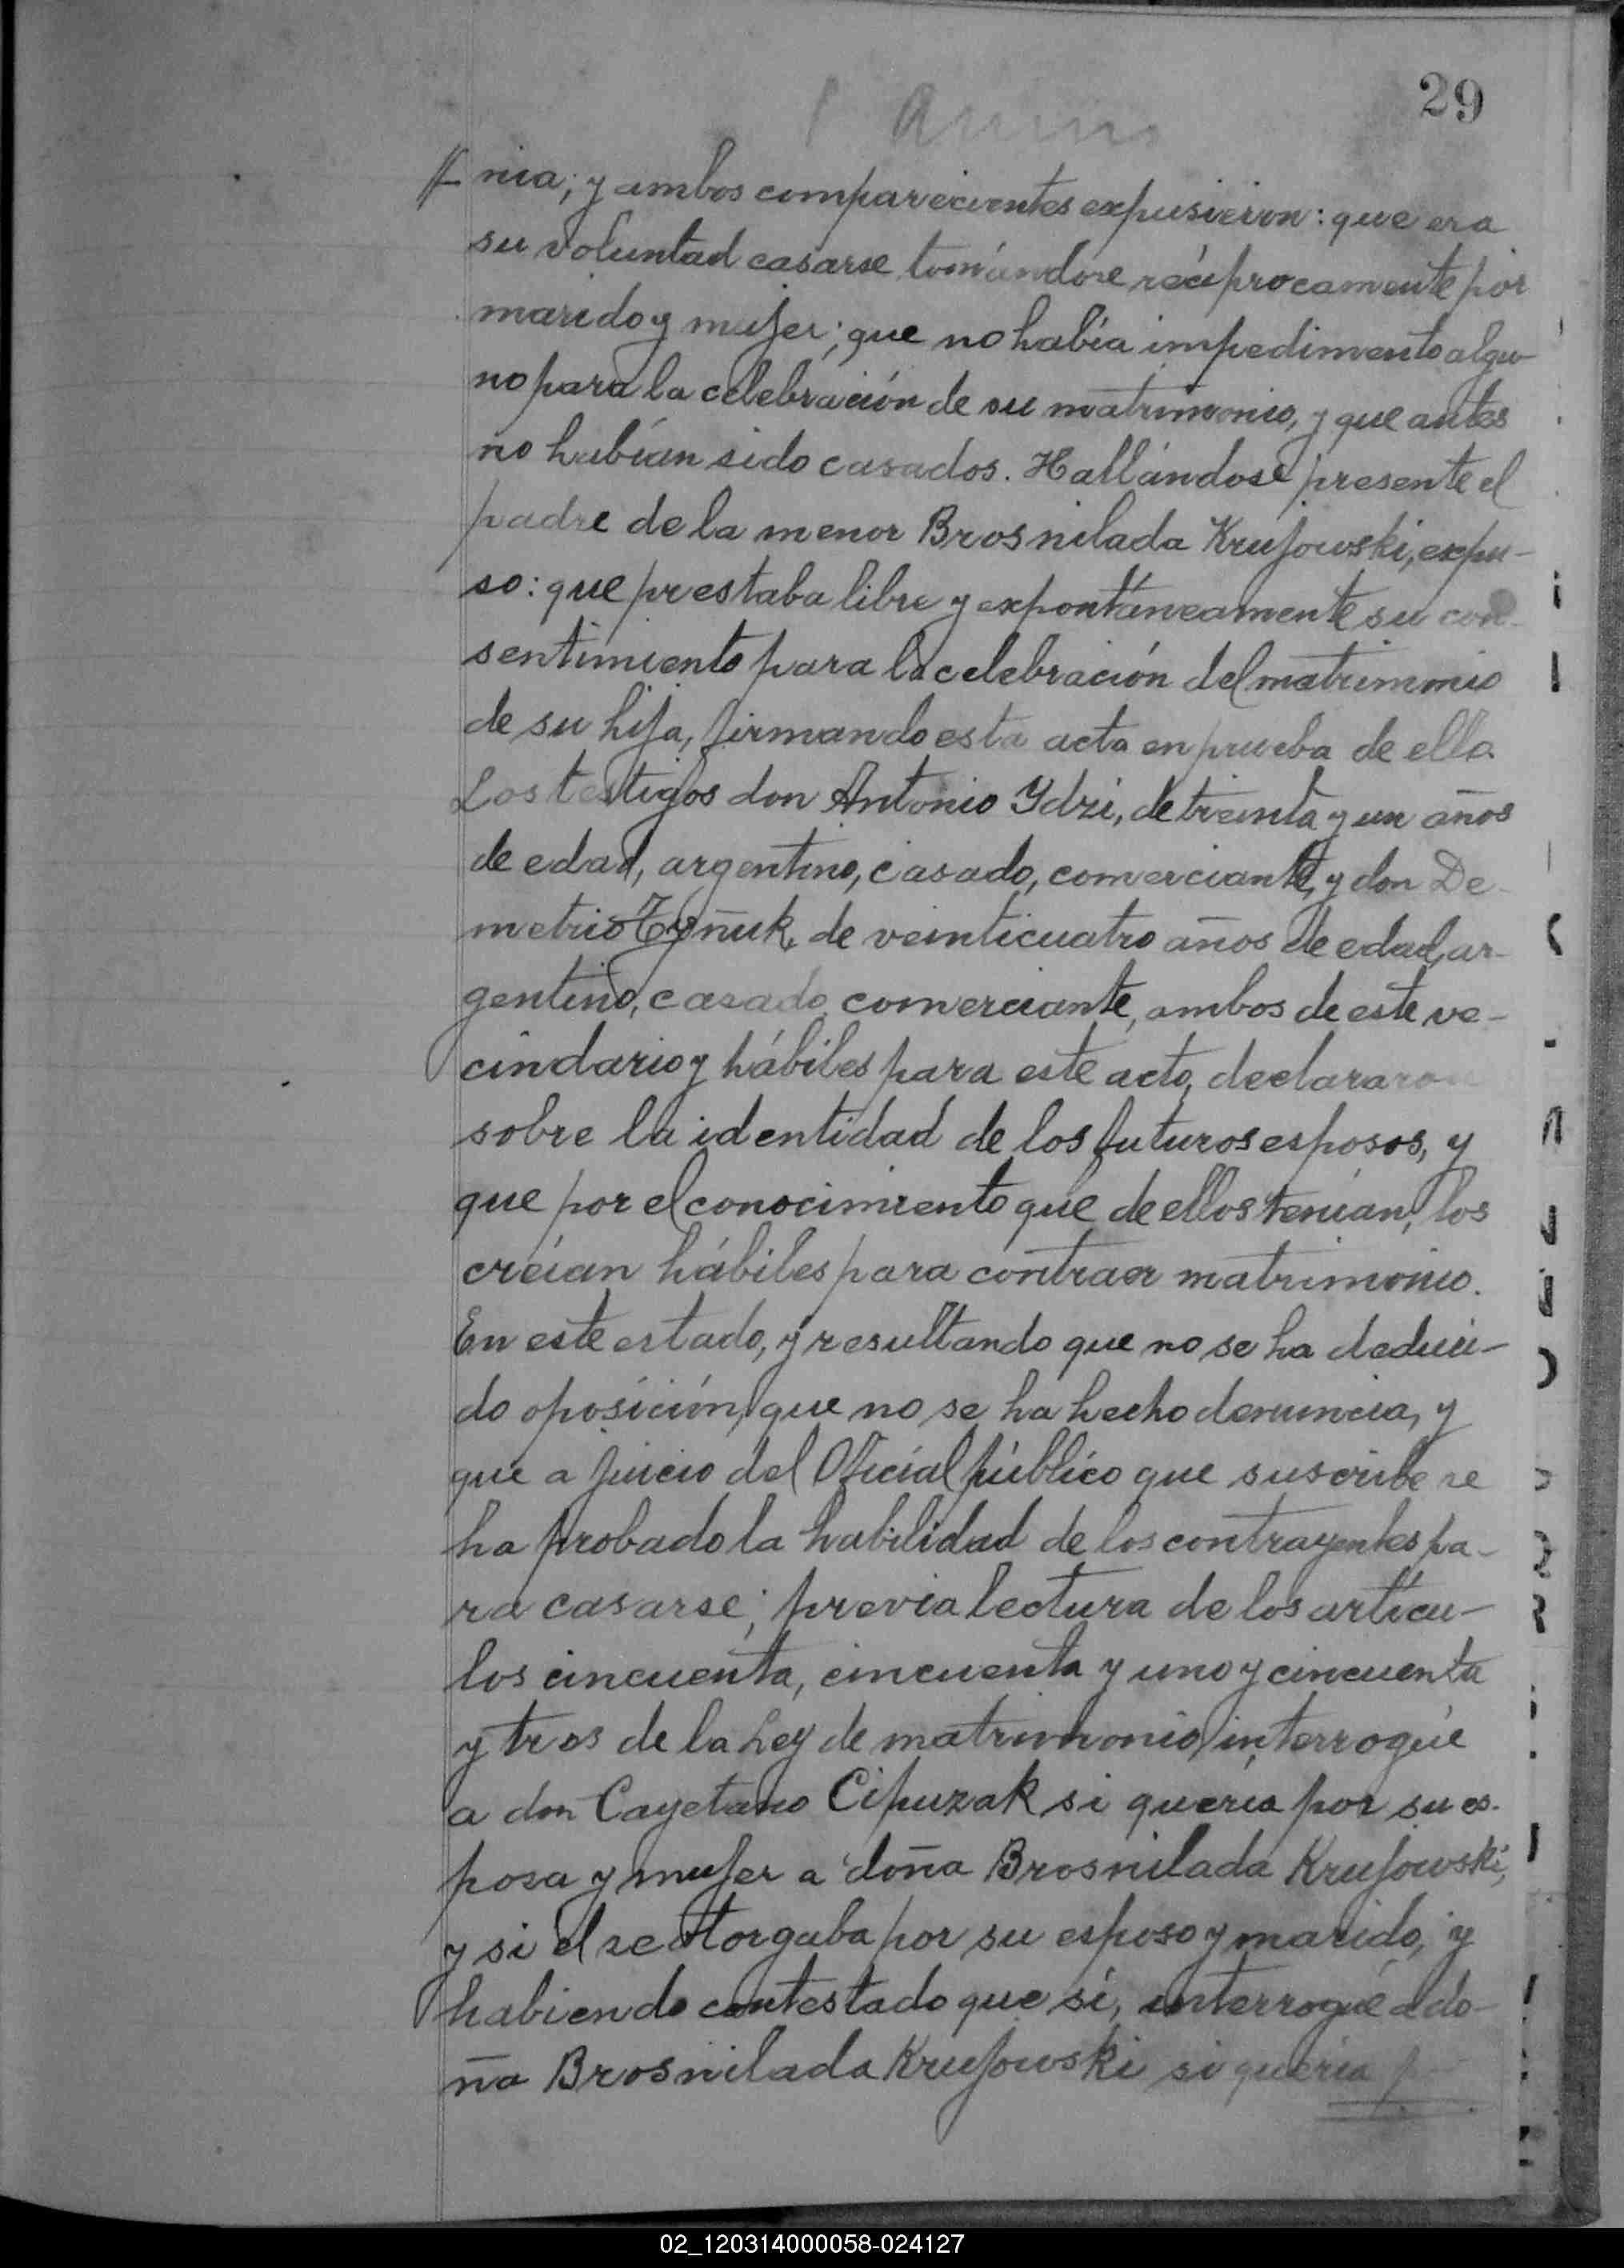 29
nia; y ambos comparecientes expusieron: que era
su voluntad casarse tomándose recíprocamente por
marido y mujer; que no había impedimento algu-
no para la celebración de su matrimonio, y que antes
no habían sido casados. Hallándose presente el
padre de la menor Brosnilada Krujowski, expu-
so: que prestaba libre y expontáneamente su con-
sentimiento para la celebración del matrimonio
de su hija, firmando esta acta en prueba de ello.
Los testigos don Antonio Ydzi, de treinta y un años
de edad, argentino, casado, comerciante, y don De-
metrio de veinticuatro años de edad, ar-
gentino, casado, comerciante, ambos de este ve-
cindario y hábiles para este acto, declararon
sobre la identidad de los futuros esposos, y
que por el conocimiento que de ellos tenían, los
creían hábiles para contraer matrimonio.
En este estado, y resultando que no se ha deduci-
do oposición, que no se ha hecho denuncia, y
que a juicio del Oficial público que suscribe se
ha probado la habilidad de los contrayentes pa-
ra casarse; previa lectura de los artícu-
los cincuenta, cincuenta y uno y cincuenta
y tres de la Ley de matrimonio, interrogué
a don Cayetano Cipuzak si quería por su es-
posa y mujer a doña Brosnilada Krujowski,
y si el se otorgaba por su esposo y marido, y
habiendo contestado que sí, interrogué a do-
ña Brosnilada Krujowski si quería
02_120314000058-024127